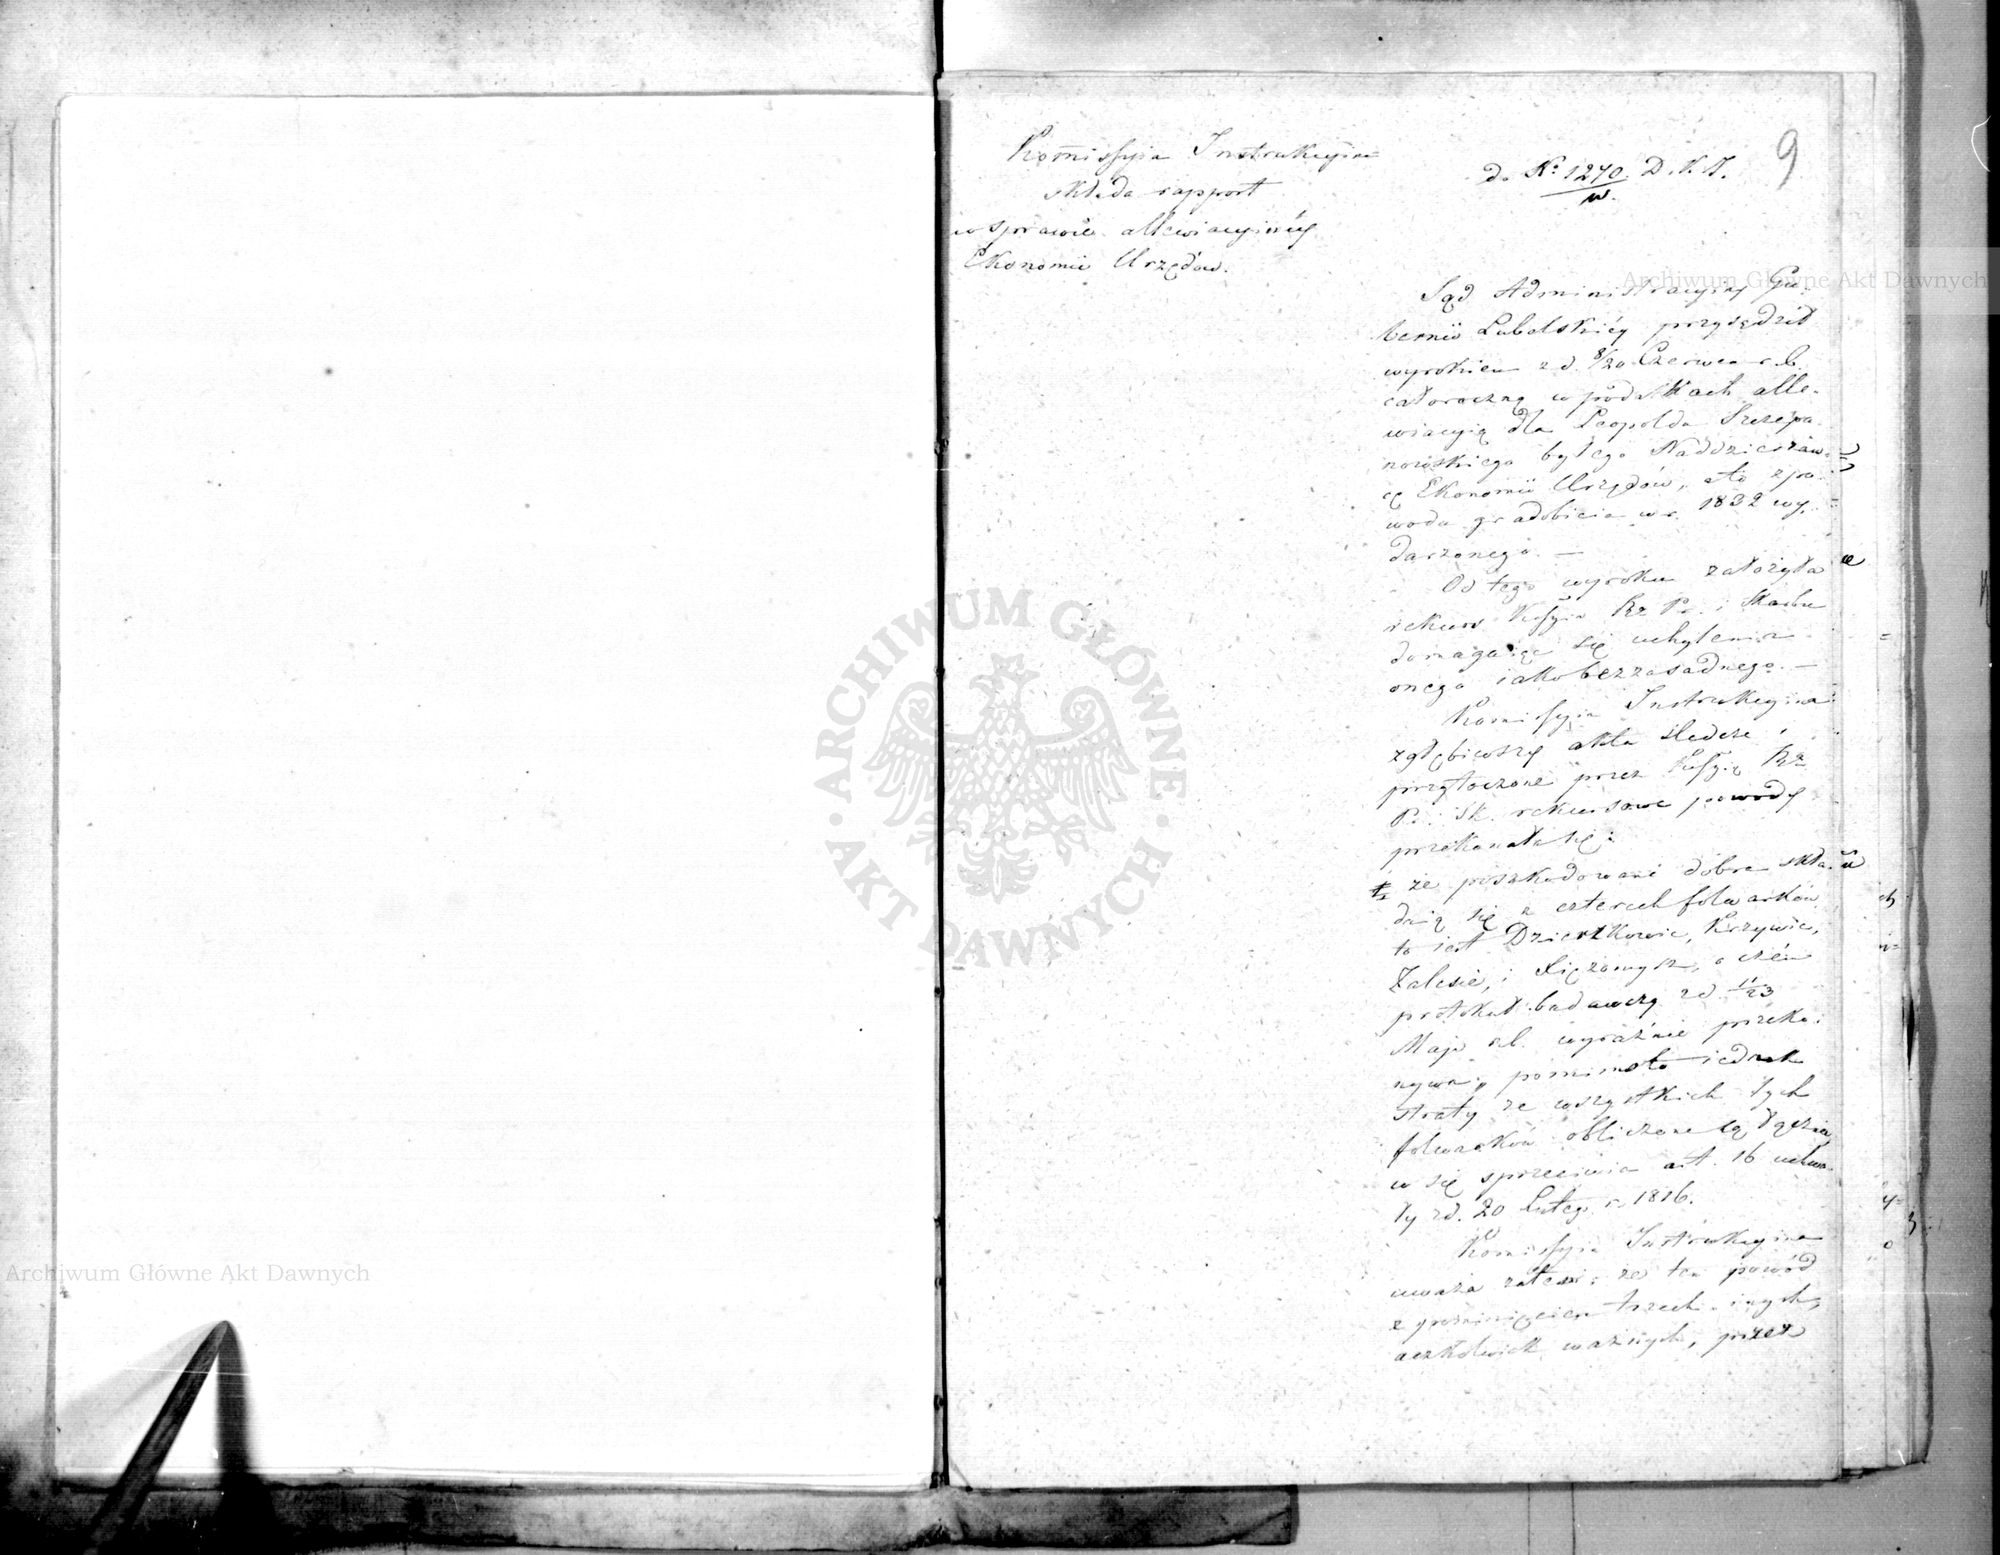 9
Kom̄issyia Instrukcyina
składa rapport
w sprawie allewiacyinéy
Ekonomii Urzędów.
do Nº 1270. D. K. I.
w.
Sąd Administracyiny Gu-
bernii Lubelskiéy przysędził
wyrokiem z d. 8/20 Czerwca r. b.
całoroczną w podatkach alle-
wiacyią dla Leopolda Szczepa-
nowskiego byłego Naddzierżaw-
cę Ekonomii Urzędów, a to z po-
wodu gradobicia w r. 1832 wy-
darzonego. —
Od tego wyroku założyła
rekurs Kssyia Rz. Pr. i Skarbu
domagaiąc się uchylenia
onego iako bezzasadnego. —
Komissyia Instrukcyina
zgłębiwszy akta śledcze i
przytoczone przez Kssyią Rz.
Pr. Sk. rekursowe powody
przekonała się:
że poszkodowani dobra skła-
daią się z czterech folwarków
to iest Dzierzkowic, Krzywic,
Zalesie, i Xiężomysz, o czém
protokuł badawczy z d. 11/23
Maja r. b. wyraźnie przeko-
nywa; pomimoto iednak
straty ze wszystkich tych
folwarków obliczone są łącznie,
w się sprzeciwia art. 16 uchwa-
ły z d. 20 Lutego r. 1816.
Komissyia Instrukcyina
uważa zatem, że ten powód
z pominięciem trzech innych,
aczkolwiek ważnych, przez
Archiwum Główne Akt Dawnych
Archiwum Główne Akt Dawnych
ARCHIWUM GŁÓWNE
AKT DAWNYCH